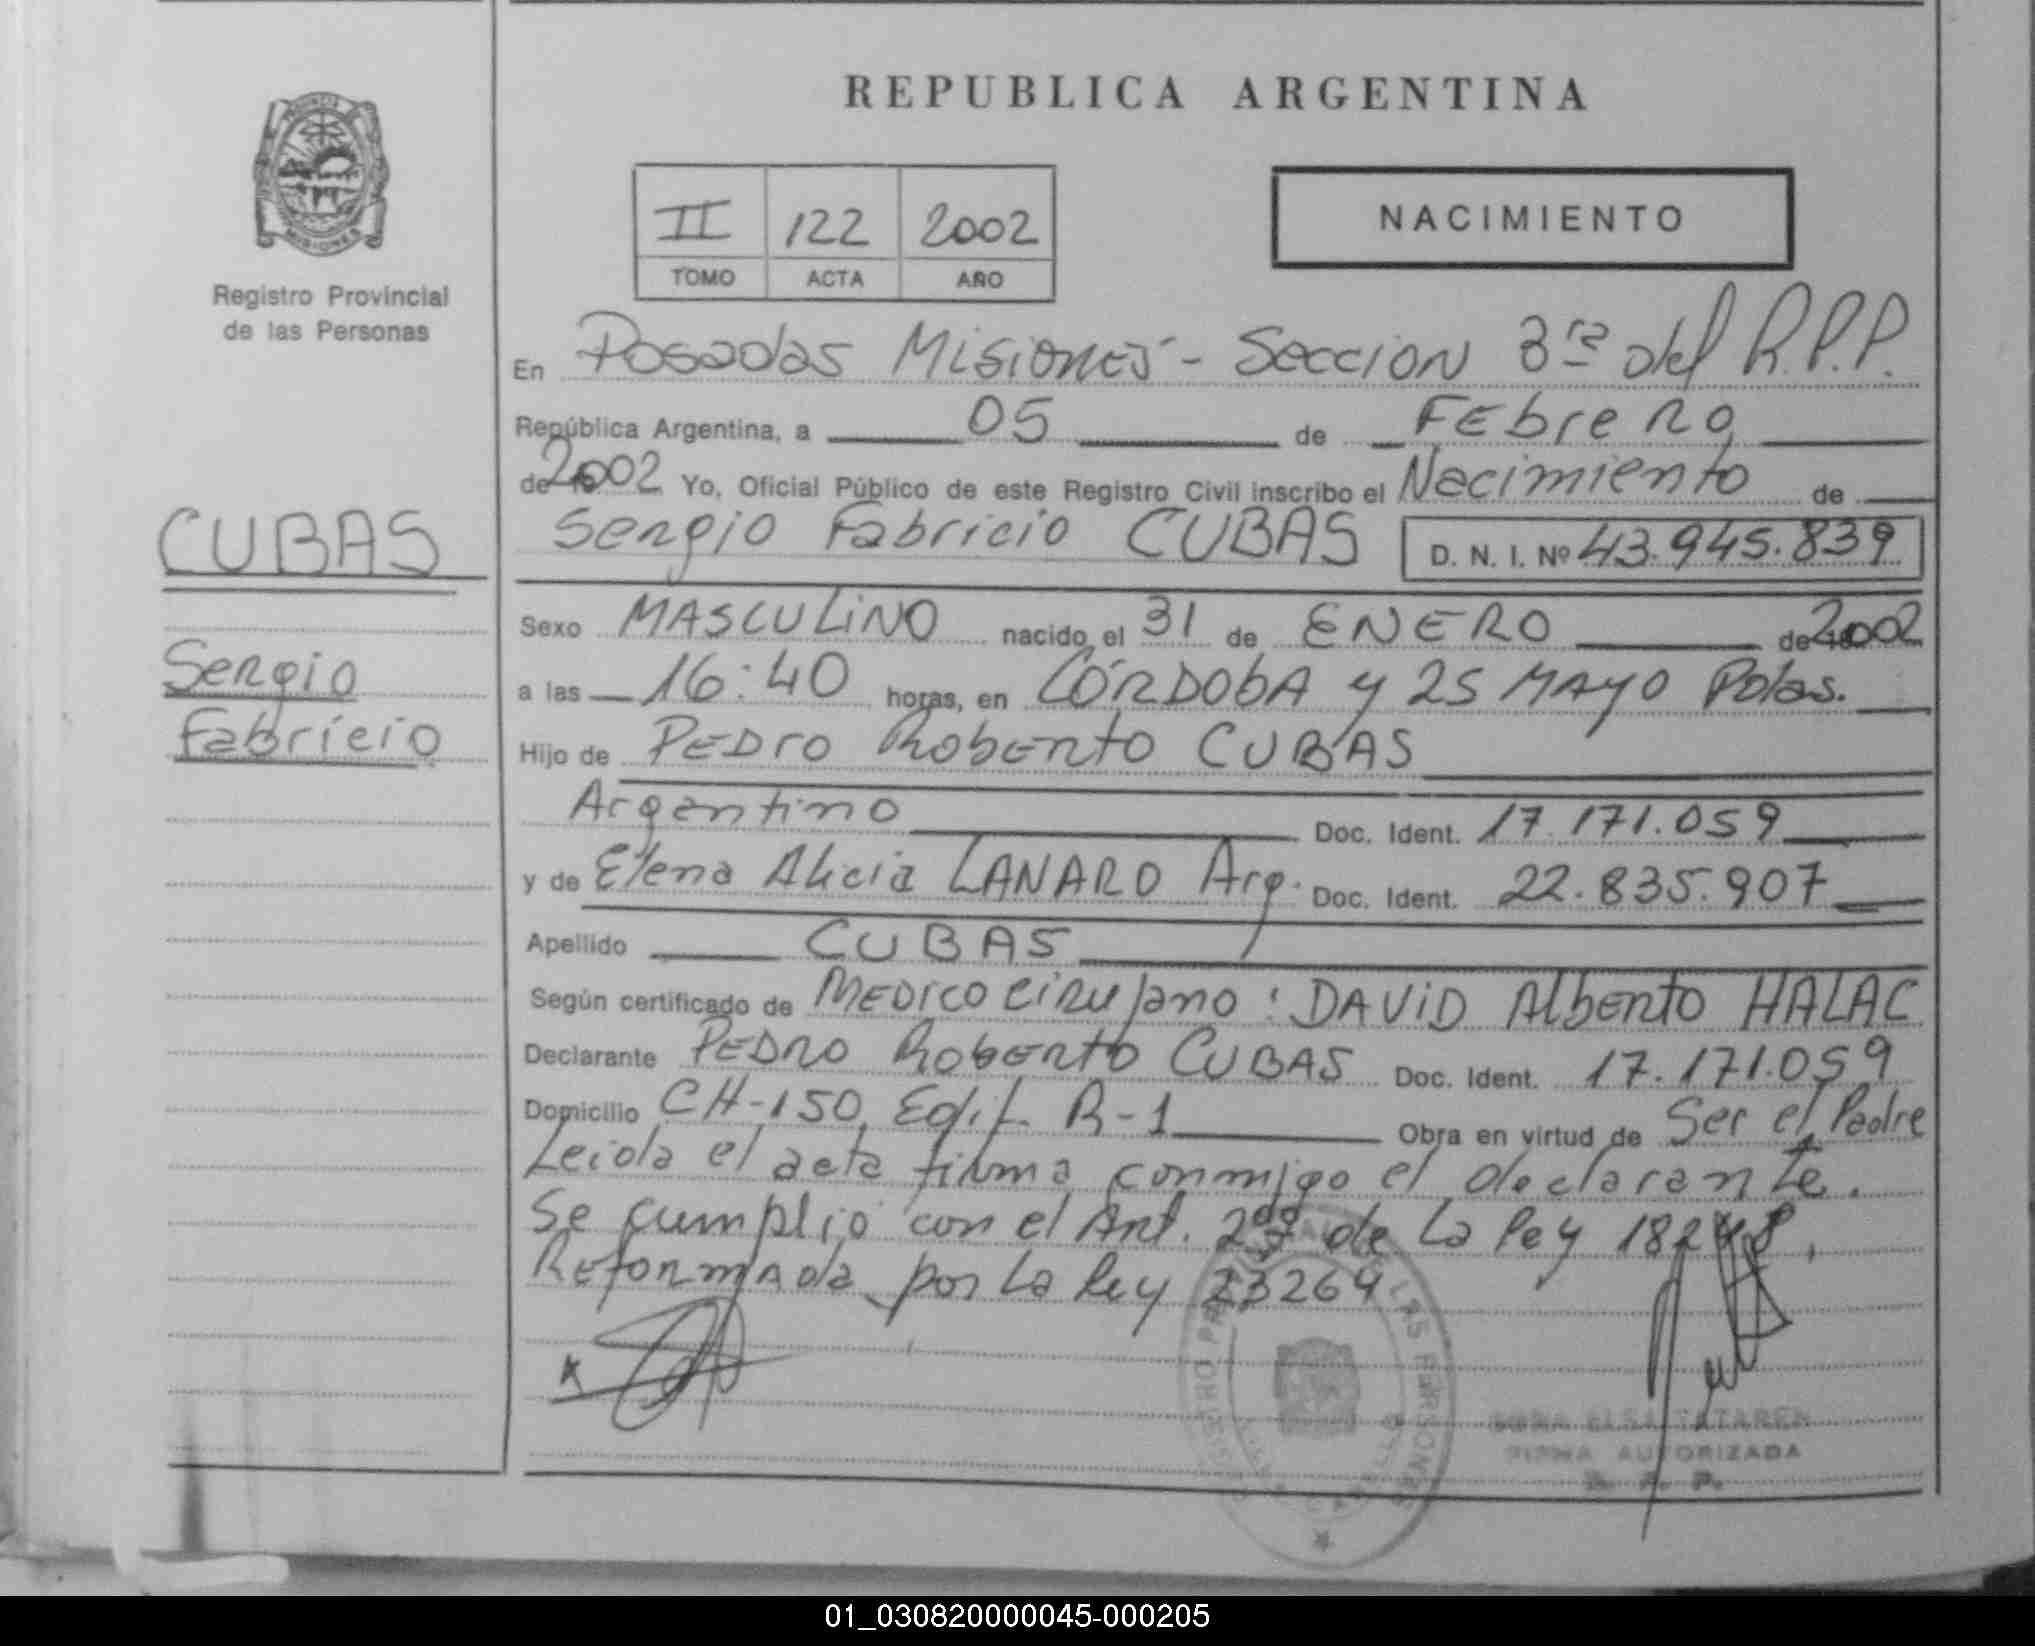 REPUBLICA ARGENTINA
II 122 2002
TOMO ACTA AÑO
NACIMIENTO
PROVINCIA
MISIONES
Registro Provincial
de las Personas
CUBAS
Sergio
Fabricio
En Posadas Misiones - Seccion 3ra del R.P.P.
República Argentina, a 05 de FEbrero
de 2002 Yo, Oficial Público de este Registro Civil inscribo el Nacimiento de
Sergio Fabricio CUBAS D. N. I. Nº 43.945.839
Sexo MASCULINO nacido el 31 de ENERO de 2002
a las 16:40 horas, en CÓRDObA y 25 MAYO Pdas.
Hijo de PEDro RobErto CUBAS
Argentino Doc. Ident. 17.171.059
y de Elena Alicia LANARO Arg. Doc. Ident. 22.835.907
Apellido CUBAS
Según certificado de MEDICO cirujano : DAViD AlbErto HALAC
Declarante PEDRO RobErto CUBAS Doc. Ident. 17.171.059
Domicilio CH-150 Edif. R-1 Obra en virtud de Ser el Padre
Leida el acta firma conmigo el declarante.
Se cumplio con el Art. 2do de La ley 18248,
Reformada por La ley 23264
REGISTRO PROVINCIAL DE LAS PERSONAS
ELSA TATAREN
FIRMA AUTORIZADA
R. P. P.
01_030820000045-000205